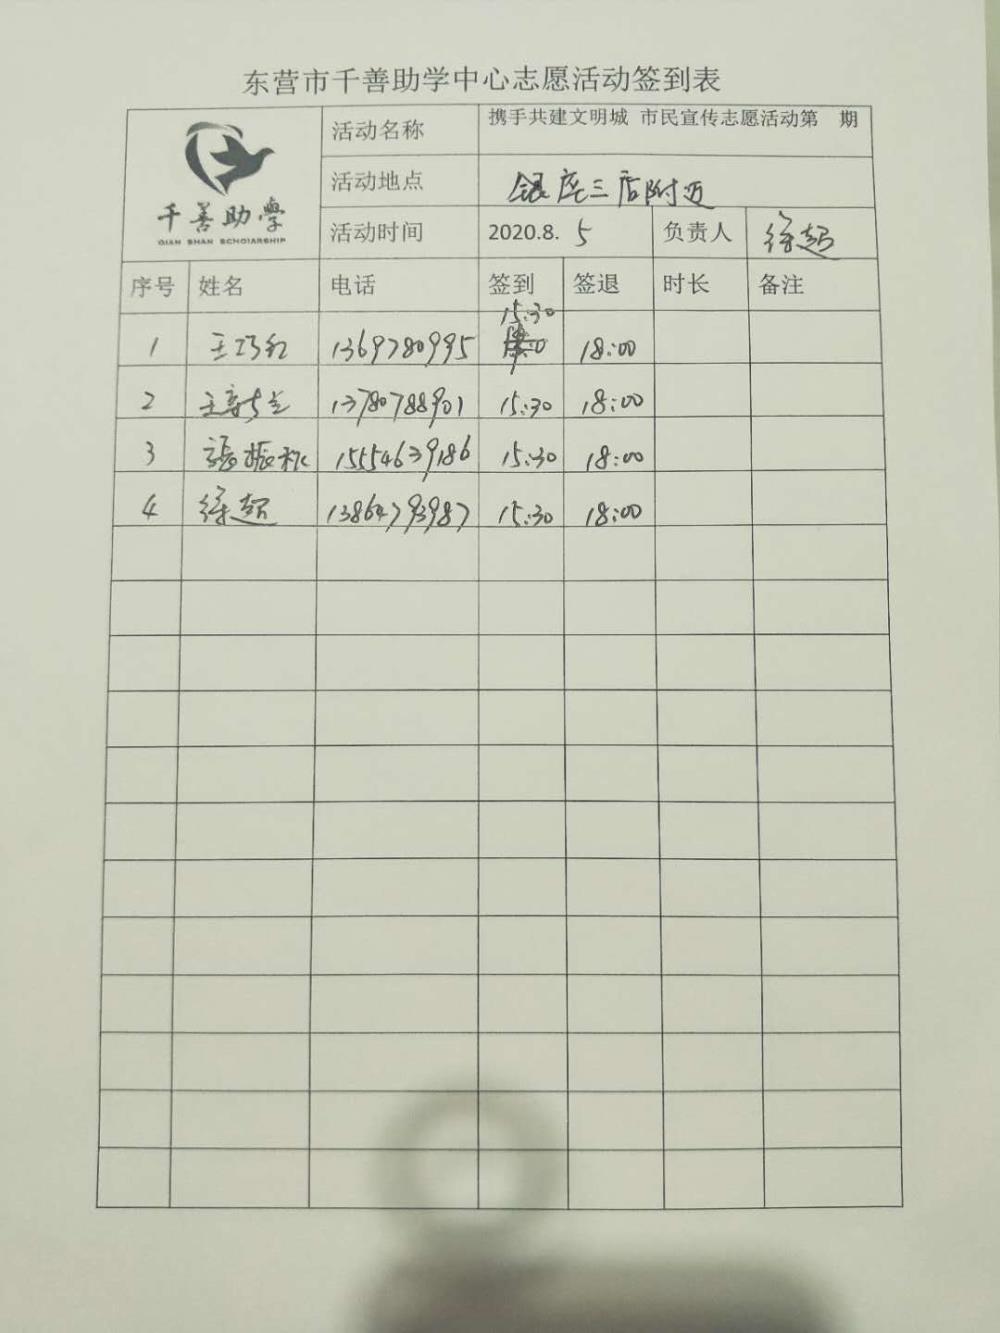 东营市千善助学中心志愿活动签到表
千善助學
QIAN SHAN SCHOLARSHIP
活动名称 携手共建文明城 市民宣传志愿活动第 期
活动地点 银座三店附近
活动时间 2020.8. 5 负责人 徐超
序号 姓名 电话 签到 签退 时长 备注
15:30
1 王巧红 1369780995 18:00
2 王 13780788901 15:30 18:00
3 張振秋 15554639186 15:30 18:00
4 徐超 13864793987 15:30 18:00